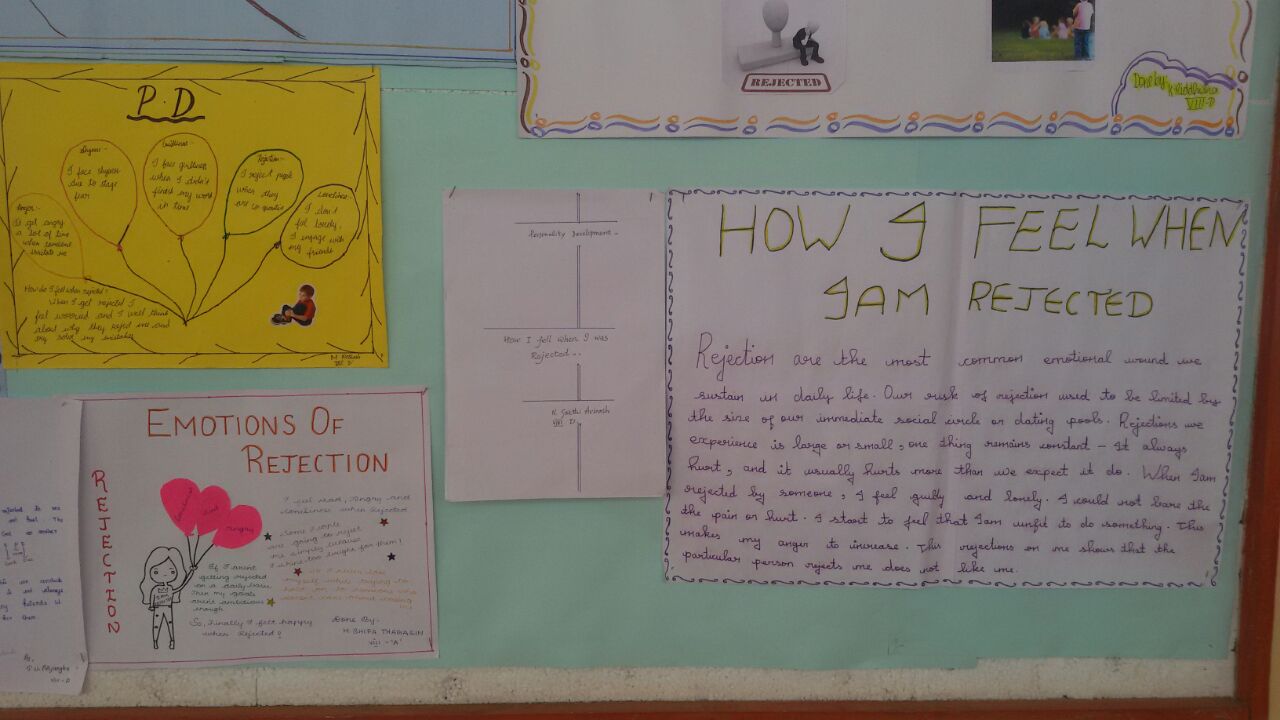 REJECTED
Done by
K Riddhvina
VIII-D
P.D
Shyness-
I face shyness
due to stage
fear
Guiltiness-
I face guiltiness
when I didn't
finish my work
in time
Rejection-
I reject people
when they
are so
Loneliness-
I don't
fell lonely,
I engage with
my friends
Anger-
I get angry
a lot of time
when someone
me
How do I fell when rejected?-
When I get rejected I
feel worried and I will think
about why they reject me and
my solve my mistakes
M
VIII D
Personality Development..
How I fell when I was
Rejected...
N. Avinash
VIII D.
HOW I FEEL WHEN
IAM REJECTED
Rejection are the most common emotional wound we
sustain in daily life. Our risk of rejection used to be limited by
the size of our immediate social circle or dating pools. Rejections we
experience is large or small, one thing remains constant - It always
hurt, and it usually hurts more than we expect it do. When Iam
rejected by someone, I feel guilty and lonely. I could not bare the
the pain or hurt. I start to feel that Iam unfit to do something. This
makes my anger to increase. This rejections on me shows that the
particular person rejects me does not like me.
EMOTIONS OF
REJECTION
REJECTION
Loneliness
Sad
Angry
I feel sad, Angry and
loneliness when Rejected
Some People
are going to reject
me simply because
I shine too bright for them!
If I arent
getting rejected
on a daily basis,
Then my goals
arent ambitious
enough
So, finally I felt happy
when Rejected?
Done By-
H. SHIFA THAHASIN
VIII-'A'
By,
VIII-D